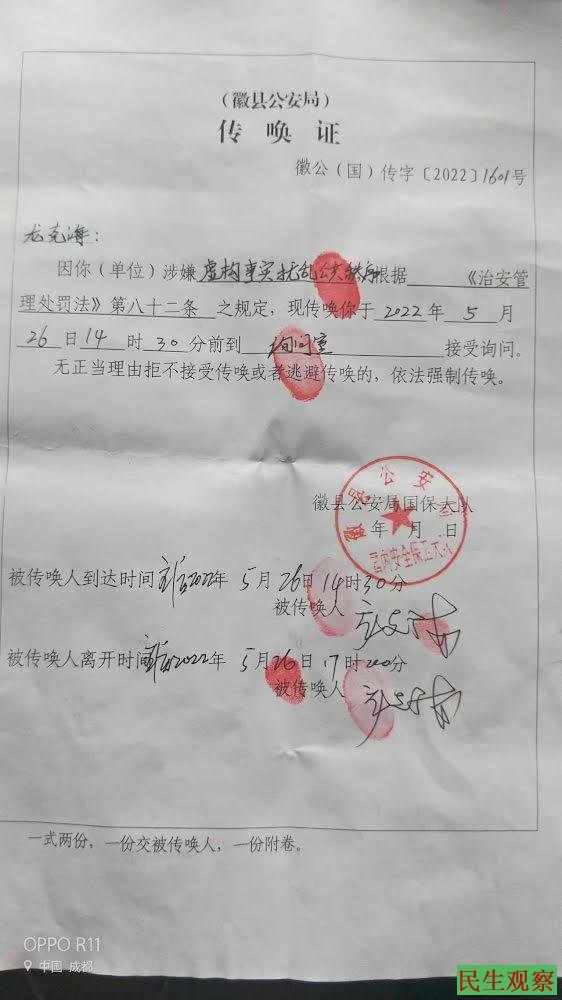 （徽县公安局）
传 唤 证
徽公（国）传字〔2022〕1601号
龙克海：
因你（单位）涉嫌虚构事实扰乱公共秩序根据 《治安管
理处罚法》第八十二条 之规定，现传唤你于 2022 年 5 月
26 日 14 时 30 分前到 询问室 接受询问。
无正当理由拒不接受传唤或者逃避传唤的，依法强制传唤。
徽县公安局
徽县公安局国保大队
年 月 日
被传唤人到达时间 2022年 5月26日14时30分
被传唤人
被传唤人离开时间 2022年 5月26日17时 分
被传唤人
一式两份，一份交被传唤人，一份附卷。
OPPO R11
中国 成都
民生观察